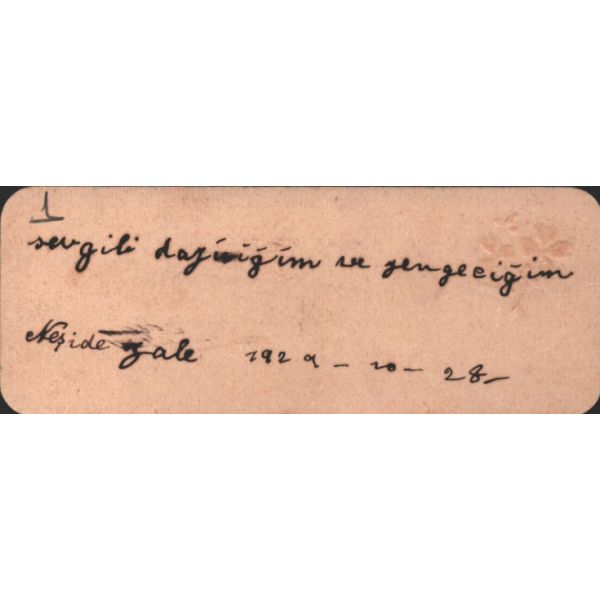 1
sevgili dayıcığım ve yengeciğim
Neşide Jale 1929 - 10 - 28 -